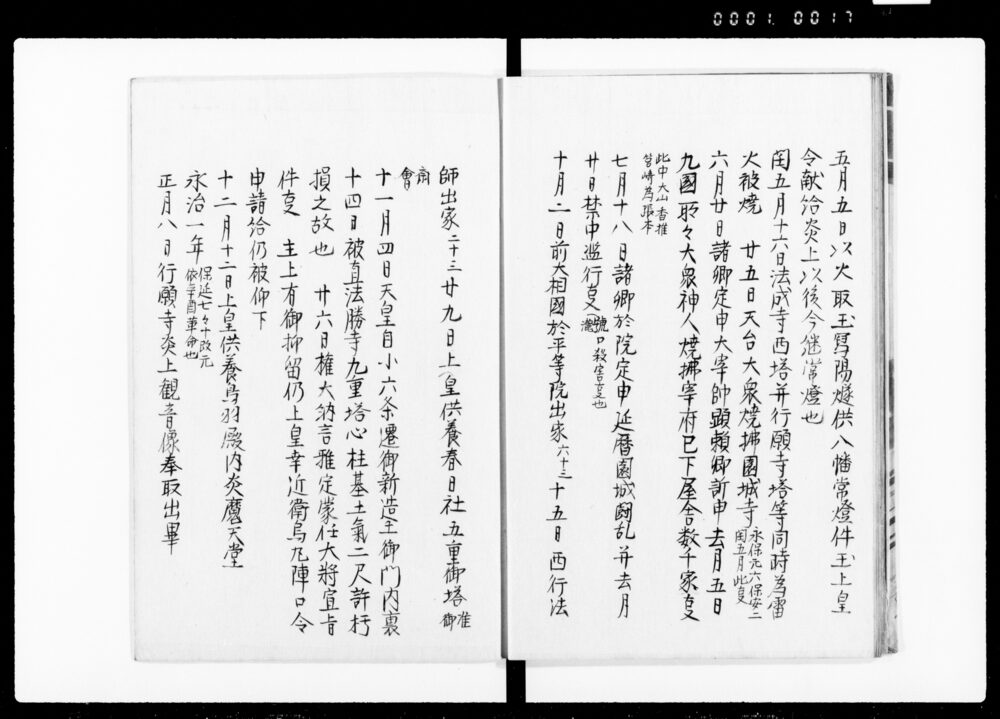 0001 0017
五月五日以火取玉写陽燧供八幡常燈件玉上皇
令献給炎上以後今継常燈也
閏五月十六日法成寺西塔并行願寺塔等同時為雷
火被焼 廿五日天台大衆焼拂園城寺 永保元六保安二
閏五月此㕝
六月廿日諸卿定申大宰帥顕頼卿訴申去月五日
九國所々大衆神人焼拂宰府已下屋舎数千家㕝
此中大山香推
筥崎為張本
七月十八日諸卿於院定申延暦園城闘乱并去月
廿日禁中濫行㕝 瀧口殺害㕝也
十月二日前大相國於平等院出家 六十三 十五日西行法
師出家 二十三 廿九日上皇供養春日社五重御塔 准御
斎會
十一月四日天皇自小六条遷御新造土御門内裏
十四日被直法勝寺九重塔心柱基土氣二尺許朽
損之故也 廿六日権大納言雅定蒙任大将宣旨
件㕝 主上有御抑留仍上皇幸近衛烏丸陣口令
申請給仍被仰下
十二月十二日上皇供養鳥羽殿内炎魔天堂
永治一年 保延七々十改元
依辛酉革命也
正月八日行願寺炎上観音像奉取出畢